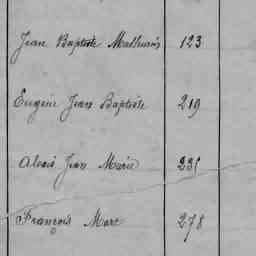 Jean Baptiste Mathurin 123
Eugène Jean Baptiste 219
Alexis Jean Marie 231
François Marc 278